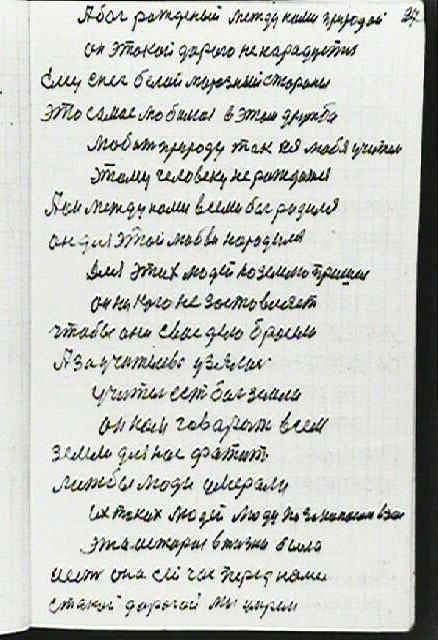 А бог рожденый между нами природой 37
он этокой дорого не нарадуется
Ему снег белой морозный стороны
это самае любимая в этом дружба
любит природу так
этому человеку не рождатся
А он между нами всеми бог родился
он для этой любви народился
для этих людей на землю пришел
он ни кого не заставляет
чтобы они свае дело бросели
А за учительво узялися
учитель ест бог земли
он нам говарит всем
земли для нас фатить
лижбы люди умерали
их таких людей
эта история в жизни была
и есть она сей час перед нами
с такой дорогой мы умрем